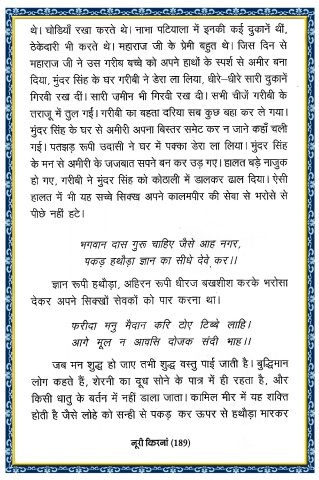 थे। घोडियाँ रखा करते थे। नाभा पटियाला में इनकी कई दुकानें थीं,
ठेकेदारी भी करते थे। महाराज जी के प्रेमी बहुत थे। जिस दिन से
महाराज जी ने उस गरीब बच्चे को अपने हाथों के स्पर्श से अमीर बना
दिया, मुंदर सिंह के घर गरीबी ने डेरा ला लिया, धीरे-धीरे सारी दुकानें
गिरवी रख दीं। सारी जमीन भी गिरवी रख दी। सभी चीजें गरीबी के
तराजू में तुल गई। गरीबी का बहता दरिया सब कुछ बहा कर ले गया।
मुंदर सिंह के घर से अमीरी अपना बिस्तर समेट कर न जाने कहाँ चली
गई। पतझड़ रूपी उदासी ने घर में पक्का डेरा ला लिया। मुंदर सिंह
के मन से अमीरी के जजबात सपने बन कर उड़ गए। हालत बड़े नाजुक
हो गए, गरीबी ने मुंदर सिंह को कोठाली में डालकर ढाल दिया। ऐसी
हालत में भी यह सच्चे सिक्ख अपने कालमपीर की सेवा से भरोसे से
पीछे नहीं हटे।
भगवान दास गुरू चाहिए जैसे आह नगर,
पकड़ हथौड़ा ज्ञान का सीधे देवे कर।।
ज्ञान रूपी हथौड़ा, अहिरन रूपी धीरज बखशीश करके भरोसा
देकर अपने सिक्खों सेवकों को पार करना था।
फरीदा मनु मैदान करि टोए टिब्बे लाहि।
आगे मूल न आवसि दोजक संदी भाह।।
जब मन शुद्ध हो जाए तभी शुद्ध वस्तु पाई जाती है। बुद्धिमान
लोग कहते हैं, शेरनी का दूध सोने के पात्र में ही रहता है, और
किसी धातु के बर्तन में नहीं डाला जाता। कामिल मीर में यह शक्ति
होती है जैसे लोहे को सन्ही से पकड़ कर ऊपर से हथौड़ा मारकर
नूरी किरनां (189)